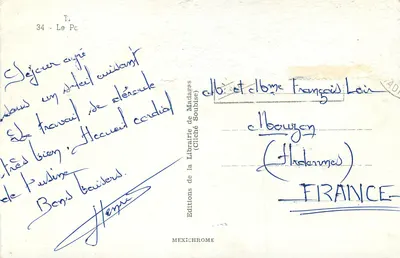 34 - Le Po
Séjour agré
sous un soleil cuisant
Le travail se déroule
très bien. Accueil cordial
de l'usine
Bons baisers.
Henri
Editions de la Librairie de Madagas
(Cliché Soubise)
MEXICHROME
M. et Mme François Loir
Mouzon
(Ardennes)
FRANCE